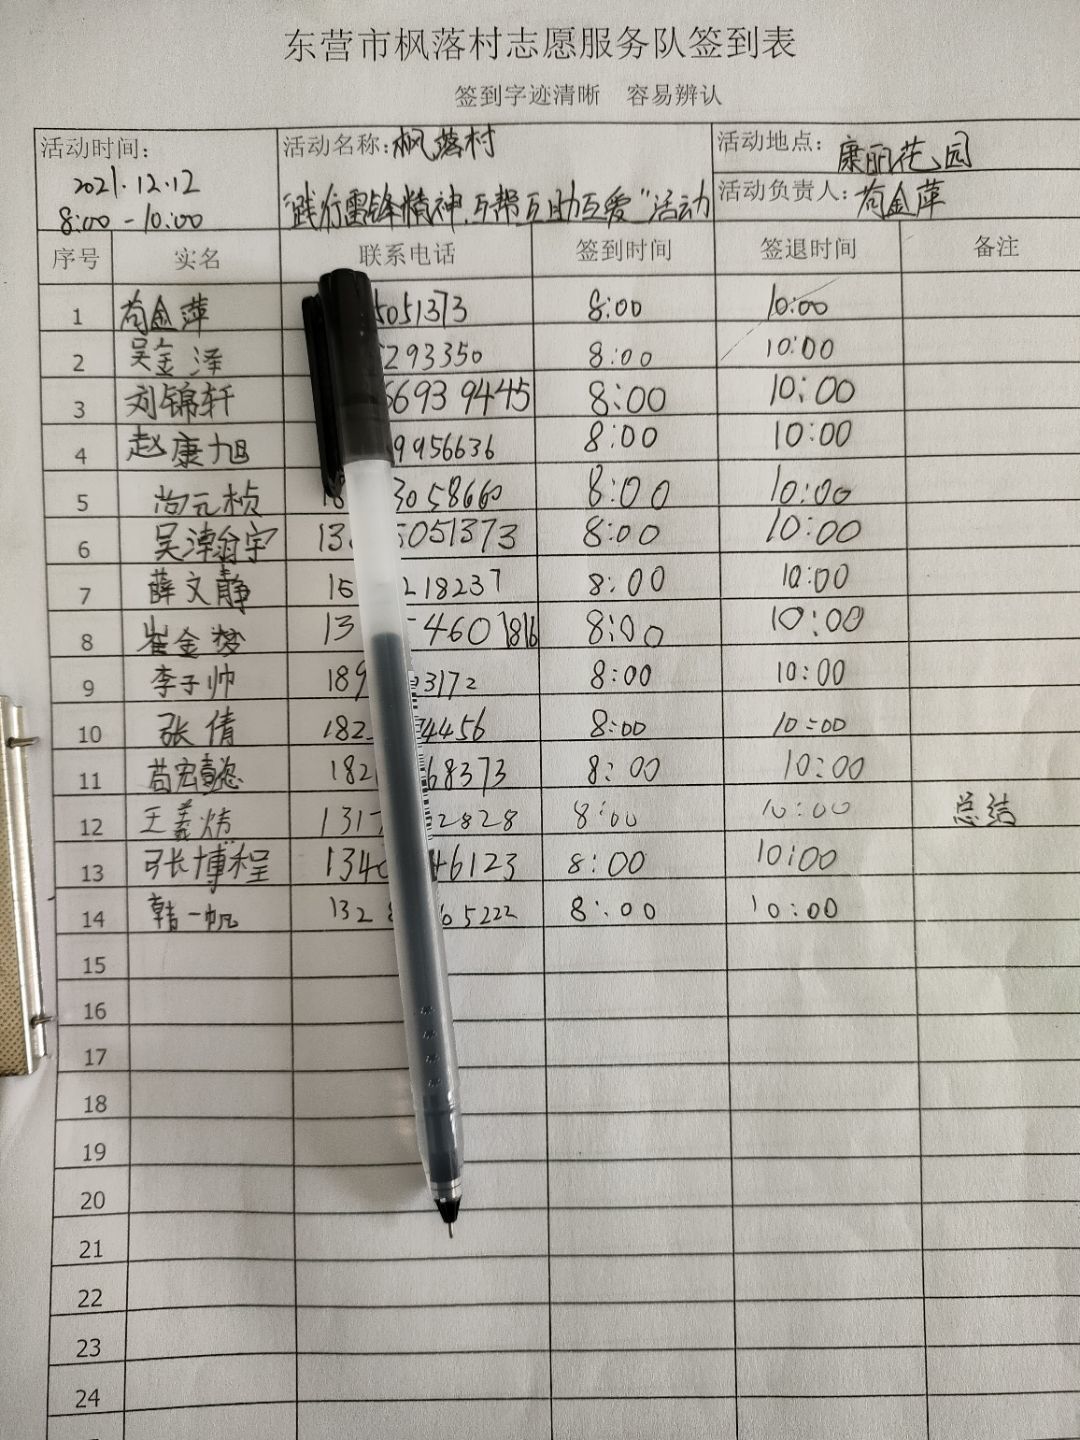 东营市枫落村志愿服务队签到表
签到字迹清晰 容易辨认
活动时间: 2021.12.12 8:00-10:00
活动名称:枫落村 "践行雷锋精神.互帮互助互爱"活动
活动地点: 康丽花园
活动负责人: 苟金萍
序号 实名 联系电话 签到时间 签退时间 备注
1 苟金萍 5051373 8:00 10:00
2 吴金泽 293350 8:00 10:00
3 刘锦轩 6693 9445 8:00 10:00
4 赵康旭 9956636 8:00 10:00
5 尚元桢 18 3058660 8:00 10:00
6 吴潭翁宇 13 5051373 8:00 10:00
7 薛文静 16 218237 8:00 10:00
8 崔金梦 13 4607816 8:00 10:00
9 李子帅 189 3172 8:00 10:00
10 张倩 182 4456 8:00 10:00
11 苟宏懿 182 68373 8:00 10:00
12 王義炜 131 2828 8:00 10:00 总结
13 张博程 134 46123 8:00 10:00
14 韩一帆 132 65222 8:00 10:00
15
16
17
18
19
20
21
22
23
24